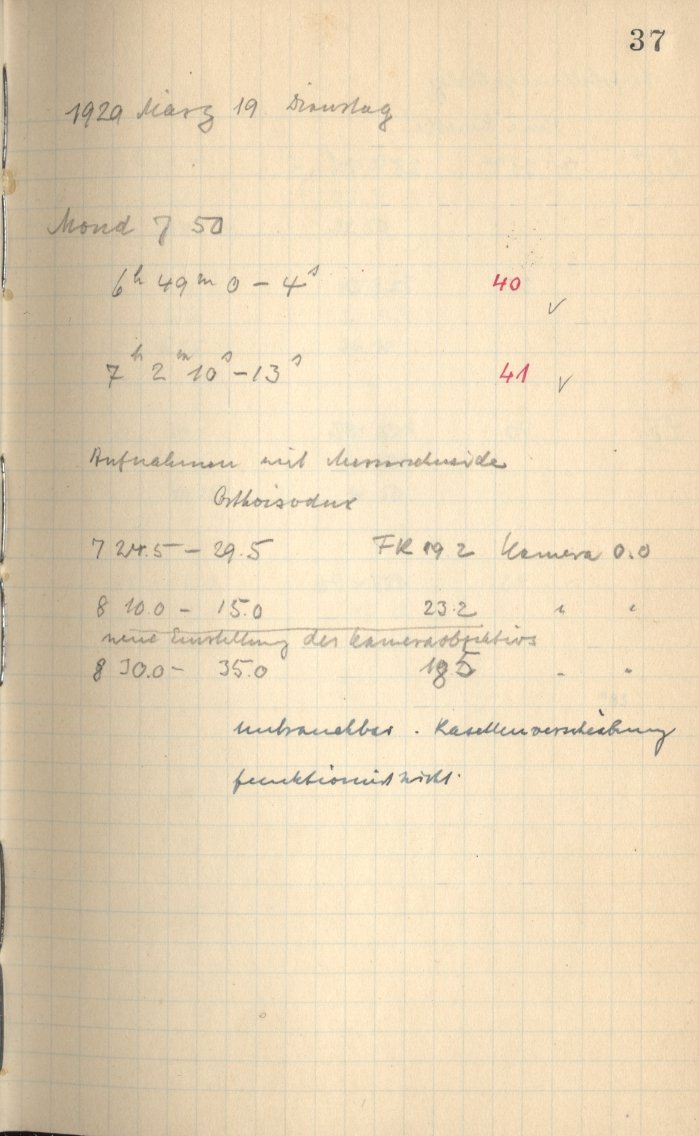 37
1929 März 19 Dienstag
Mond 7 50
6h 49m 0 - 4s 40 ✓
7h 2m 10s - 13s 41 ✓
Aufnahmen mit Messerschneide
Orthoisodux
7 24.5 - 29.5 FK 19 2 Kamera 0.0
8 10.0 - 15.0 23.2 " "
neue Einstellung des Kameraobjektivs
8 30.0 - 35.0 " "
unbrauchbar. Kasettenverschiebung
funktioniert nicht.